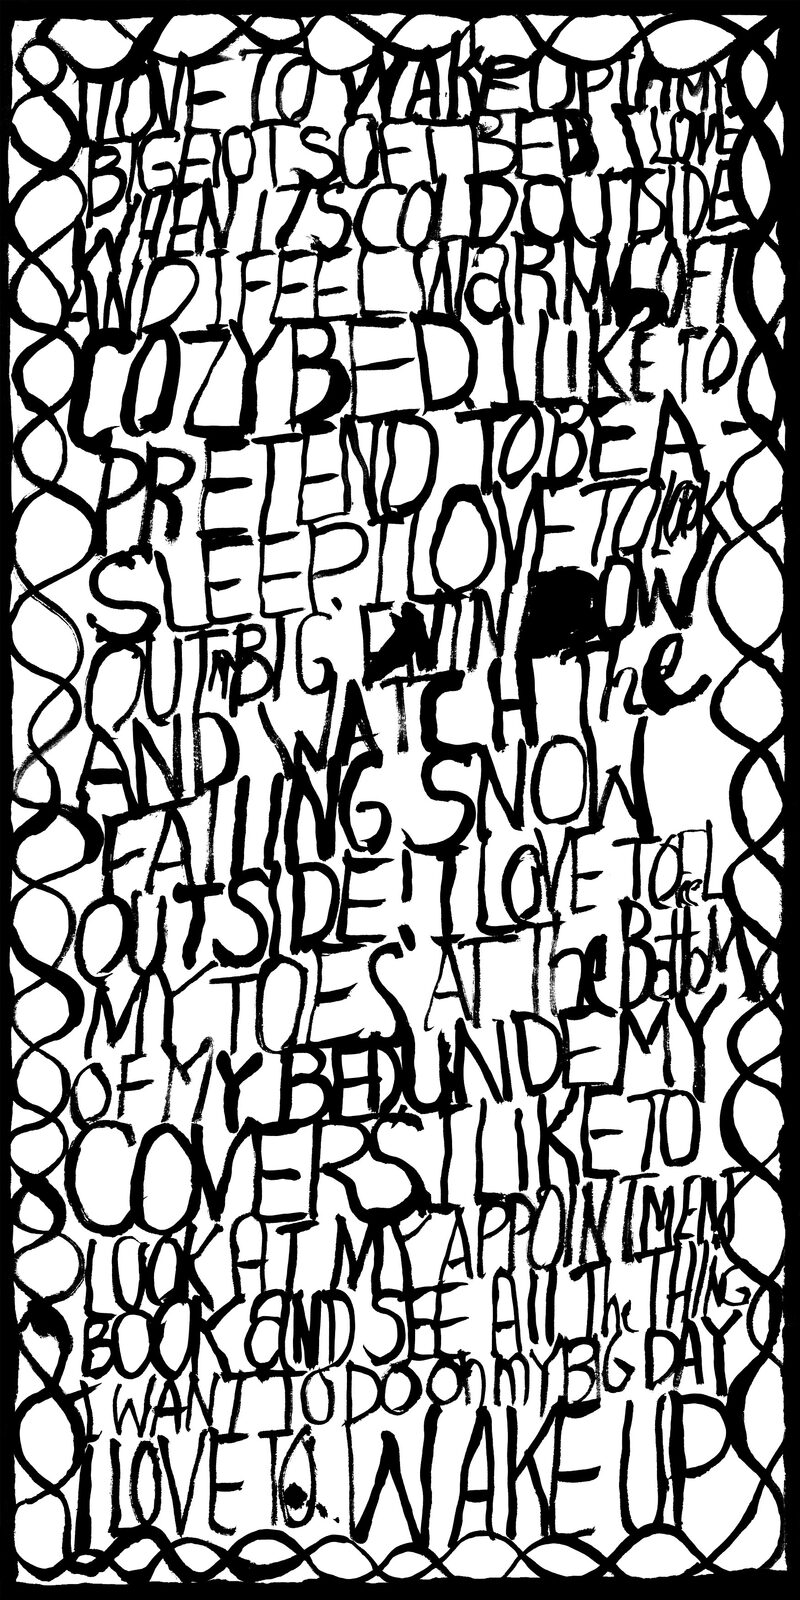 I LOVE TO WAKE UP IN MY
BIG HOT SOFT BED I LOVE
WHEN ITS COLD OUTSIDE
AND I FEEL WaRM SOFT
COZY BED I LIKE TO
PRETEND TO BE A-
SLEEP I LOVE TO look
OUT MY BIG WIN DOW
AND WATCH The
FALLING SNOW
OUTSIDE! I LOVE TO FeeL
MY TOES' AT The BottoM
OF MY BED UNDE MY
COVERS I LIKE TO
LOOK AT MY APPOINTMENT
BOOK aND SEE All The THING
I WANT TO DO on mY BIG DAY
I LOVE TO. WAKE UP